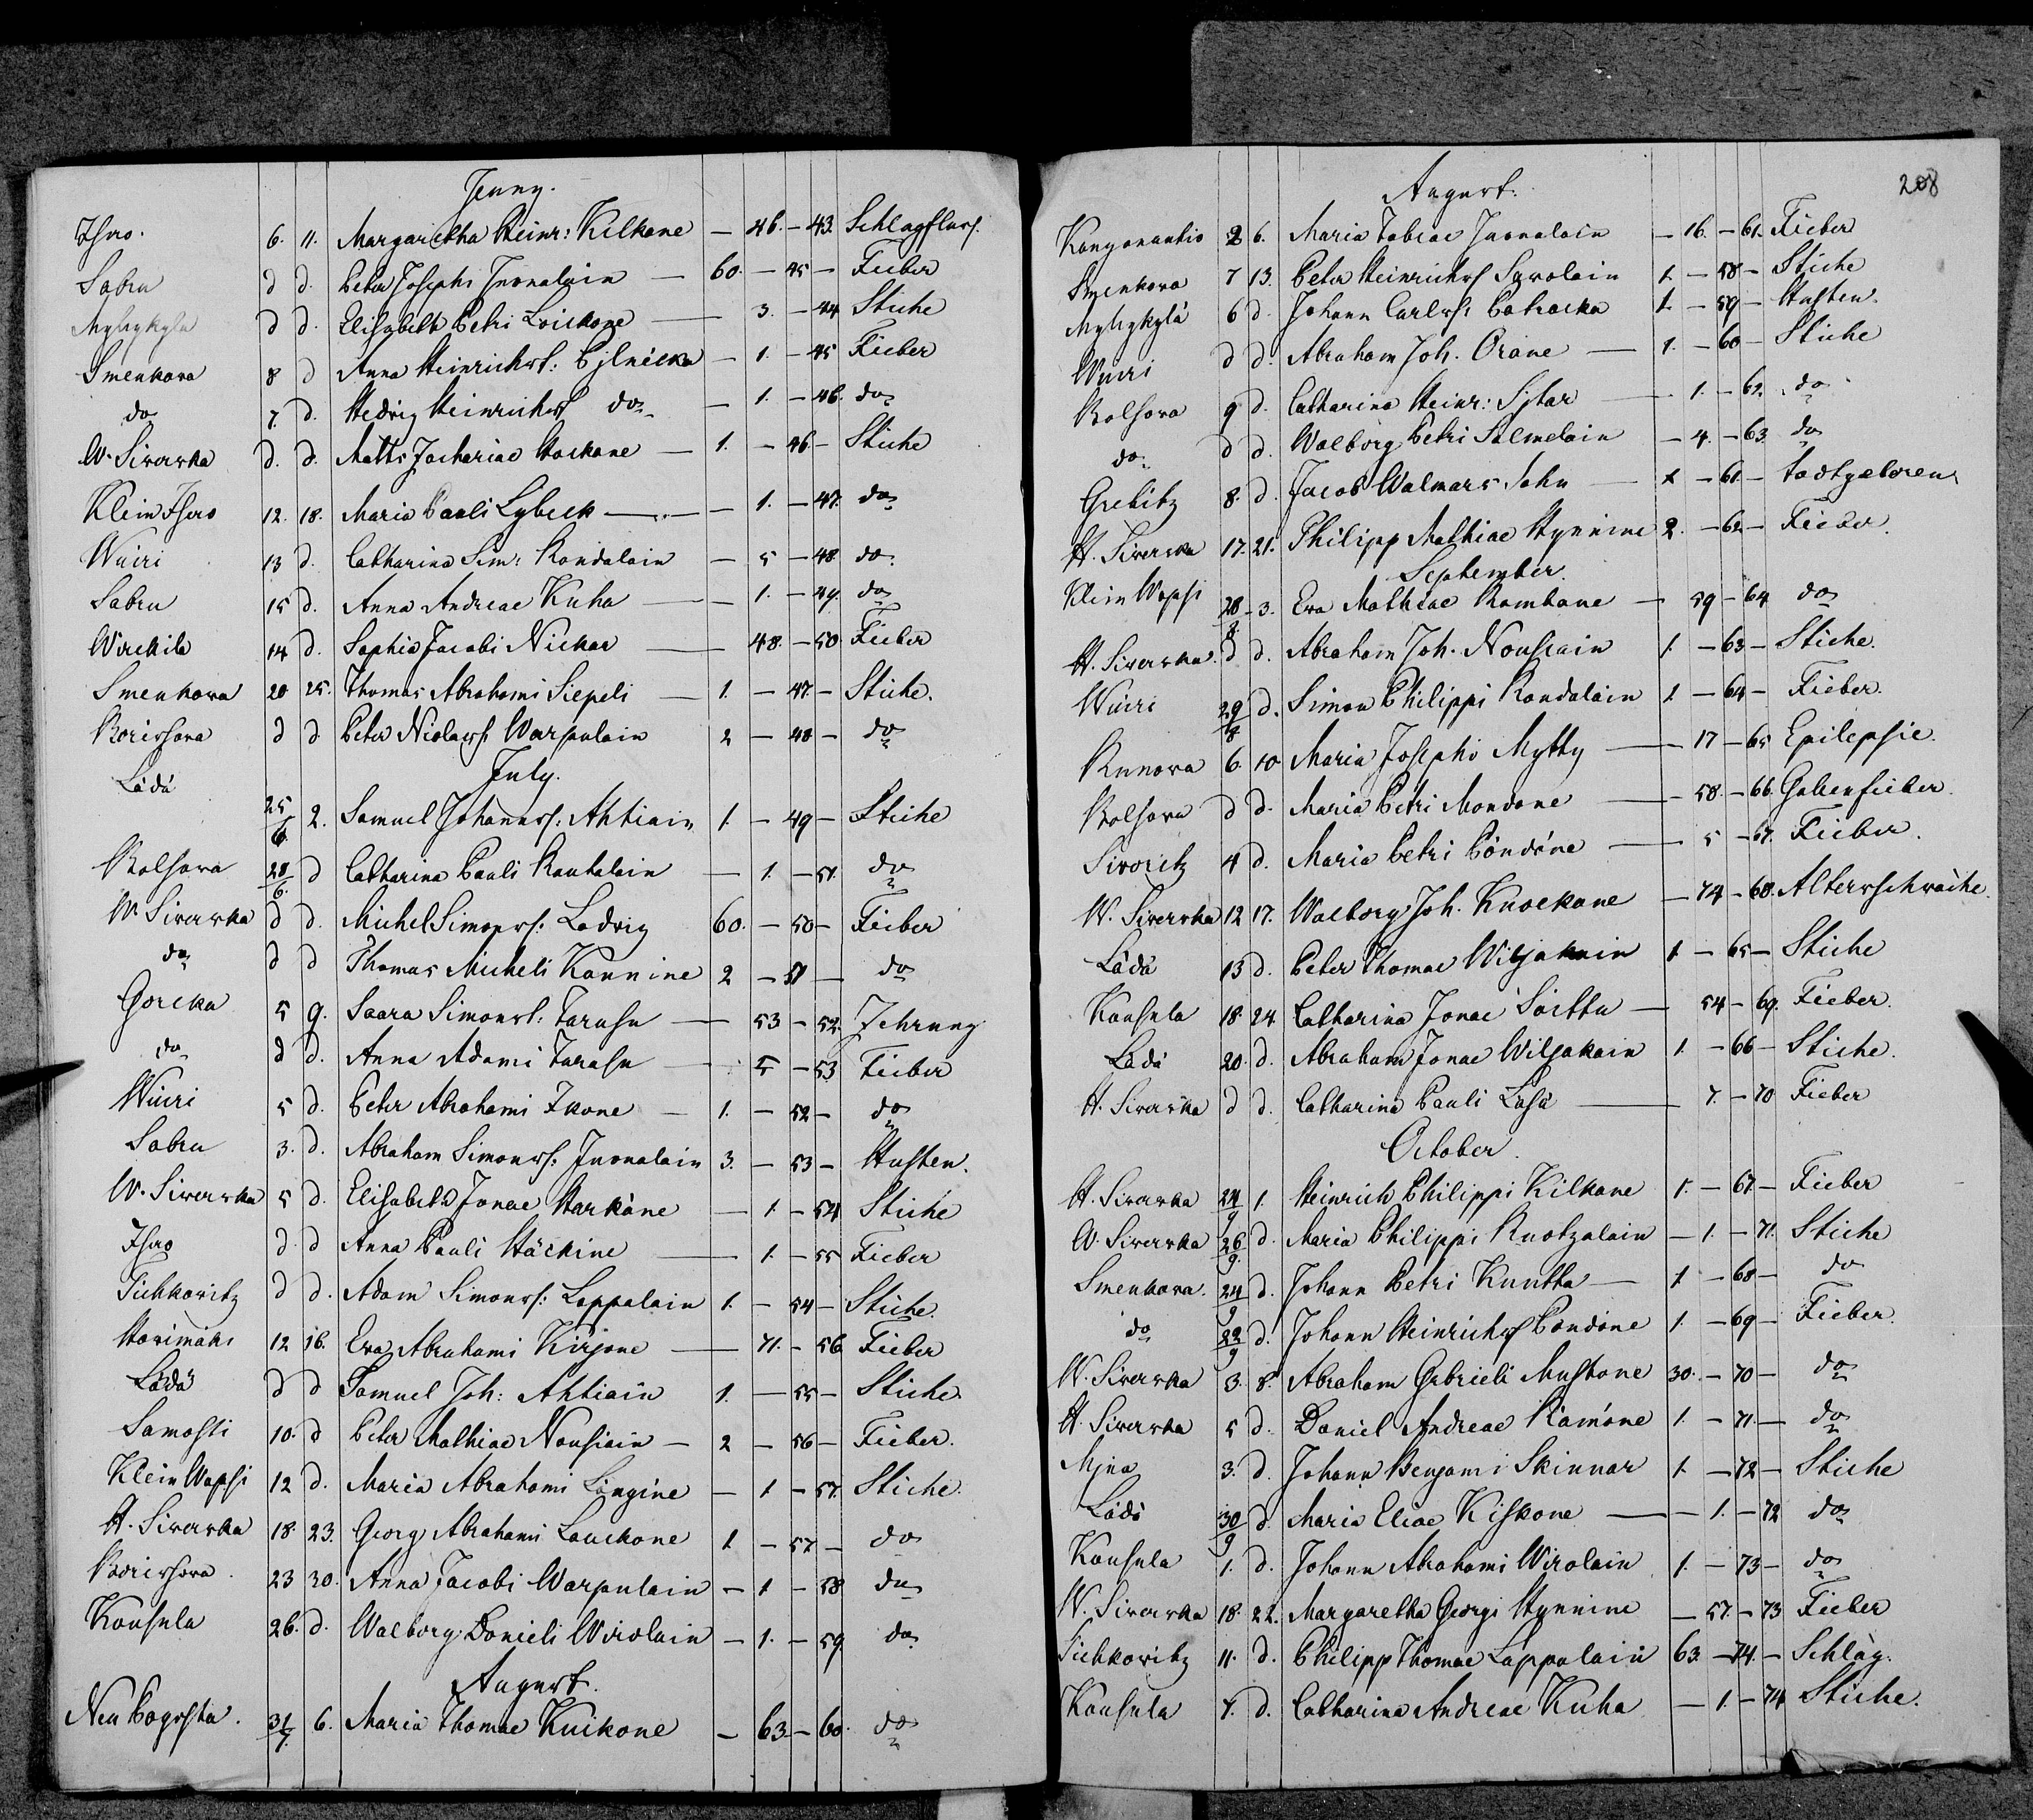 Juny.
Ihero. 6. 11. Margaretha Heinr: Kilkane — 46. — 43. Schlagfluss.
Sabru d d. Peter Josephi Juonalain — 60. — 45 — Fieber
Mylykylä d d. Elisabeth Petri Loickone — 3. — 44 Stiche
Smenkova 8 d Anna Heinrichst: — 1. — 45 Fieber
do 7. d. Hedvig Heinrichst do — 1. — 46. do
W. Siverska d. d. Matts Zachariae Hackane — 1. — 46 — Stiche
Klein Ihero 12. 18. Maria Pauli Lybeck — 1. — 47. do
Wuiri 13 d. Catharina Sim: Rondalain — 5 — 48 do.
Sabru 15 d. Anna Andreae Kuha — 1. — 49. do
Wirckilä 14 d. Sophia Jacobi Nickar — 48. — 50. Fieber
Smenkova 20 25. Thomas Abrahami Siepeli — 1. — 47. — Stiche.
Borissova d d Peter Niclauss: Warpulain 2 — 48 — do
July.
Lädä 25/6. 2. Samuel Johannss: Ahtiain 1. — 49 — Stiche
Rolsova 28/6. d Catharina Pauli Rautalain — 1. — 51. do
W. Siverska d d. Michel Simonss: Ladvig 60. — 50 — Fieber
do d d Thomas Micheli Konnine 2 — 51 — do
Gorcka 5 9. Saara Simonst: Tarusu — 53 — 52. Zehrung
do d d. Anna Adami Tarasu — 5 — 53 Fieber
Wuiri 5 d. Peter Abrahami Ikone — 1. — 52 — do
Sabru 3. d. Abraham Simonss: Juonalain 3. — 53 — Husten.
W. Siverska 5 d. Elisabeth Jonae Harkäne — 1. — 54 Stiche
Ihero d. d Anna Pauli Häckine — 1. — 55 Fieber
Sichkovitz d d. Adam Simonss: Lappalain 1. — 54 — Stiche.
Havimäki 12 16. Eva Abrahami Kirjone — 71. — 56 Fieber
Lädä d d Samuel Joh: Ahtiain 1. — 55 — Stiche
Samosti 10. d Peter Mathiae Nousiain — 2 — 56 — Fieber.
Klein Wopsi 12 d. Maria Abrahami Längine — 1 — 57. Stiche.
H. Siverska 18. 23. Georg Abrahami Lauckone 1 — 57 — do
Borissova. 23 30. Anna Jacobi Warpulain — 1 — 58 do
Kousula 26. d. Walborg Danieli Wirolain — 1. — 59. do
August.
Neu Pogosta. 31/7. 6. Maria Thomae Kuikone — 63 — 60. do
208
August.
2 6. Maria Tobiae Juonalain — 16. — 61. Fieber
Smenkova 7 13. Peter Heinrichss Savolain 1. — 58 — Stiche
Mylykylä 6 d. Johann Carlss: 1. — 59 — Husten.
Wuiri d d. Abraham Joh. Orane — 1. — 60 — Stiche
Rolsova 9 d. Catharina Heinr: Sytar — 1. — 62. do
do d d. Walborg Petri Silmelain — 4. — 63. do
Grebitz 8. d. Jacob Walmars Sohn — x — 61. — todtgeboren
H. Siverska 17. 21. Philipp Mathiae Hynnine 2. — 62 — Fieber.
September.
Klein Wopsi 28/8. 3. Eva Mathiae Rambane — 59 — 64 do
H. Siverska. d d. Abraham Joh. Nousiain 1. — 63 — Stiche.
Wuiri 29/8 d. Simon Philippi Rondalain 1 — 64 — Fieber.
Runova 6. 10 Maria Josephi Mytty — 17 — 65 Epilepsie.
Rolsova d d. Maria Petri Mondone — 58. — 66. Gallenfieber.
Sivoritz 4 d. Maria Petri Pöndöne — 5 — 67. Fieber.
W. Siverska 12 17. Walborg Joh. Knockane — 74 — 68. Altersschwäche.
Lädä 13 d. Peter Thomae Wiljakain 1. — 65 — Stiche
Kousula 18. 24. Catharina Jonae Soittu — 54 — 69. Fieber.
Lädä 20. d. Abraham Jonae Wiljakain 1. — 66 — Stiche.
H. Siverska d d. Catharina Pauli Läsä — 7. — 70 Fieber
October.
H. Siverska 24/9 1. Heinrich Philippi Kilkane 1. — 67. — Fieber
W. Siverska 26/9. d. Maria Philippi Ruotzalain — 1. — 71. Stiche
Smenkova. 24/9 d. Johann Petri Kuntta — 1. — 68 — do
do 22/9 d. Johann Heinrichss Pöndöne 1. — 69 — Fieber.
W. Siverska 3. 8. Abraham Gabrieli Mustone 30. — 70 — do
H. Siverska 5 d. Daniel Andreae Rämöne 1. — 71. — do
Mjna 3. d. Johann Benjami Skinnar 1. — 72 — Stiche
Lädä 30/9 d. Maria Eliae Kiskone — 1. — 72 do
Kousula 1. d. Johann Abrahami Wirolain 1. — 73 — do
W. Siverska 18. 22. Margaretha Georgi Hynnine — 57. — 73 Fieber
Sichkovitz 11. d. Philipp Thomae Lappalain 63. — 74. — Schlag.
Kousula 7. d. Catharina Andreae Kuha — 1. — 74 Stiche.